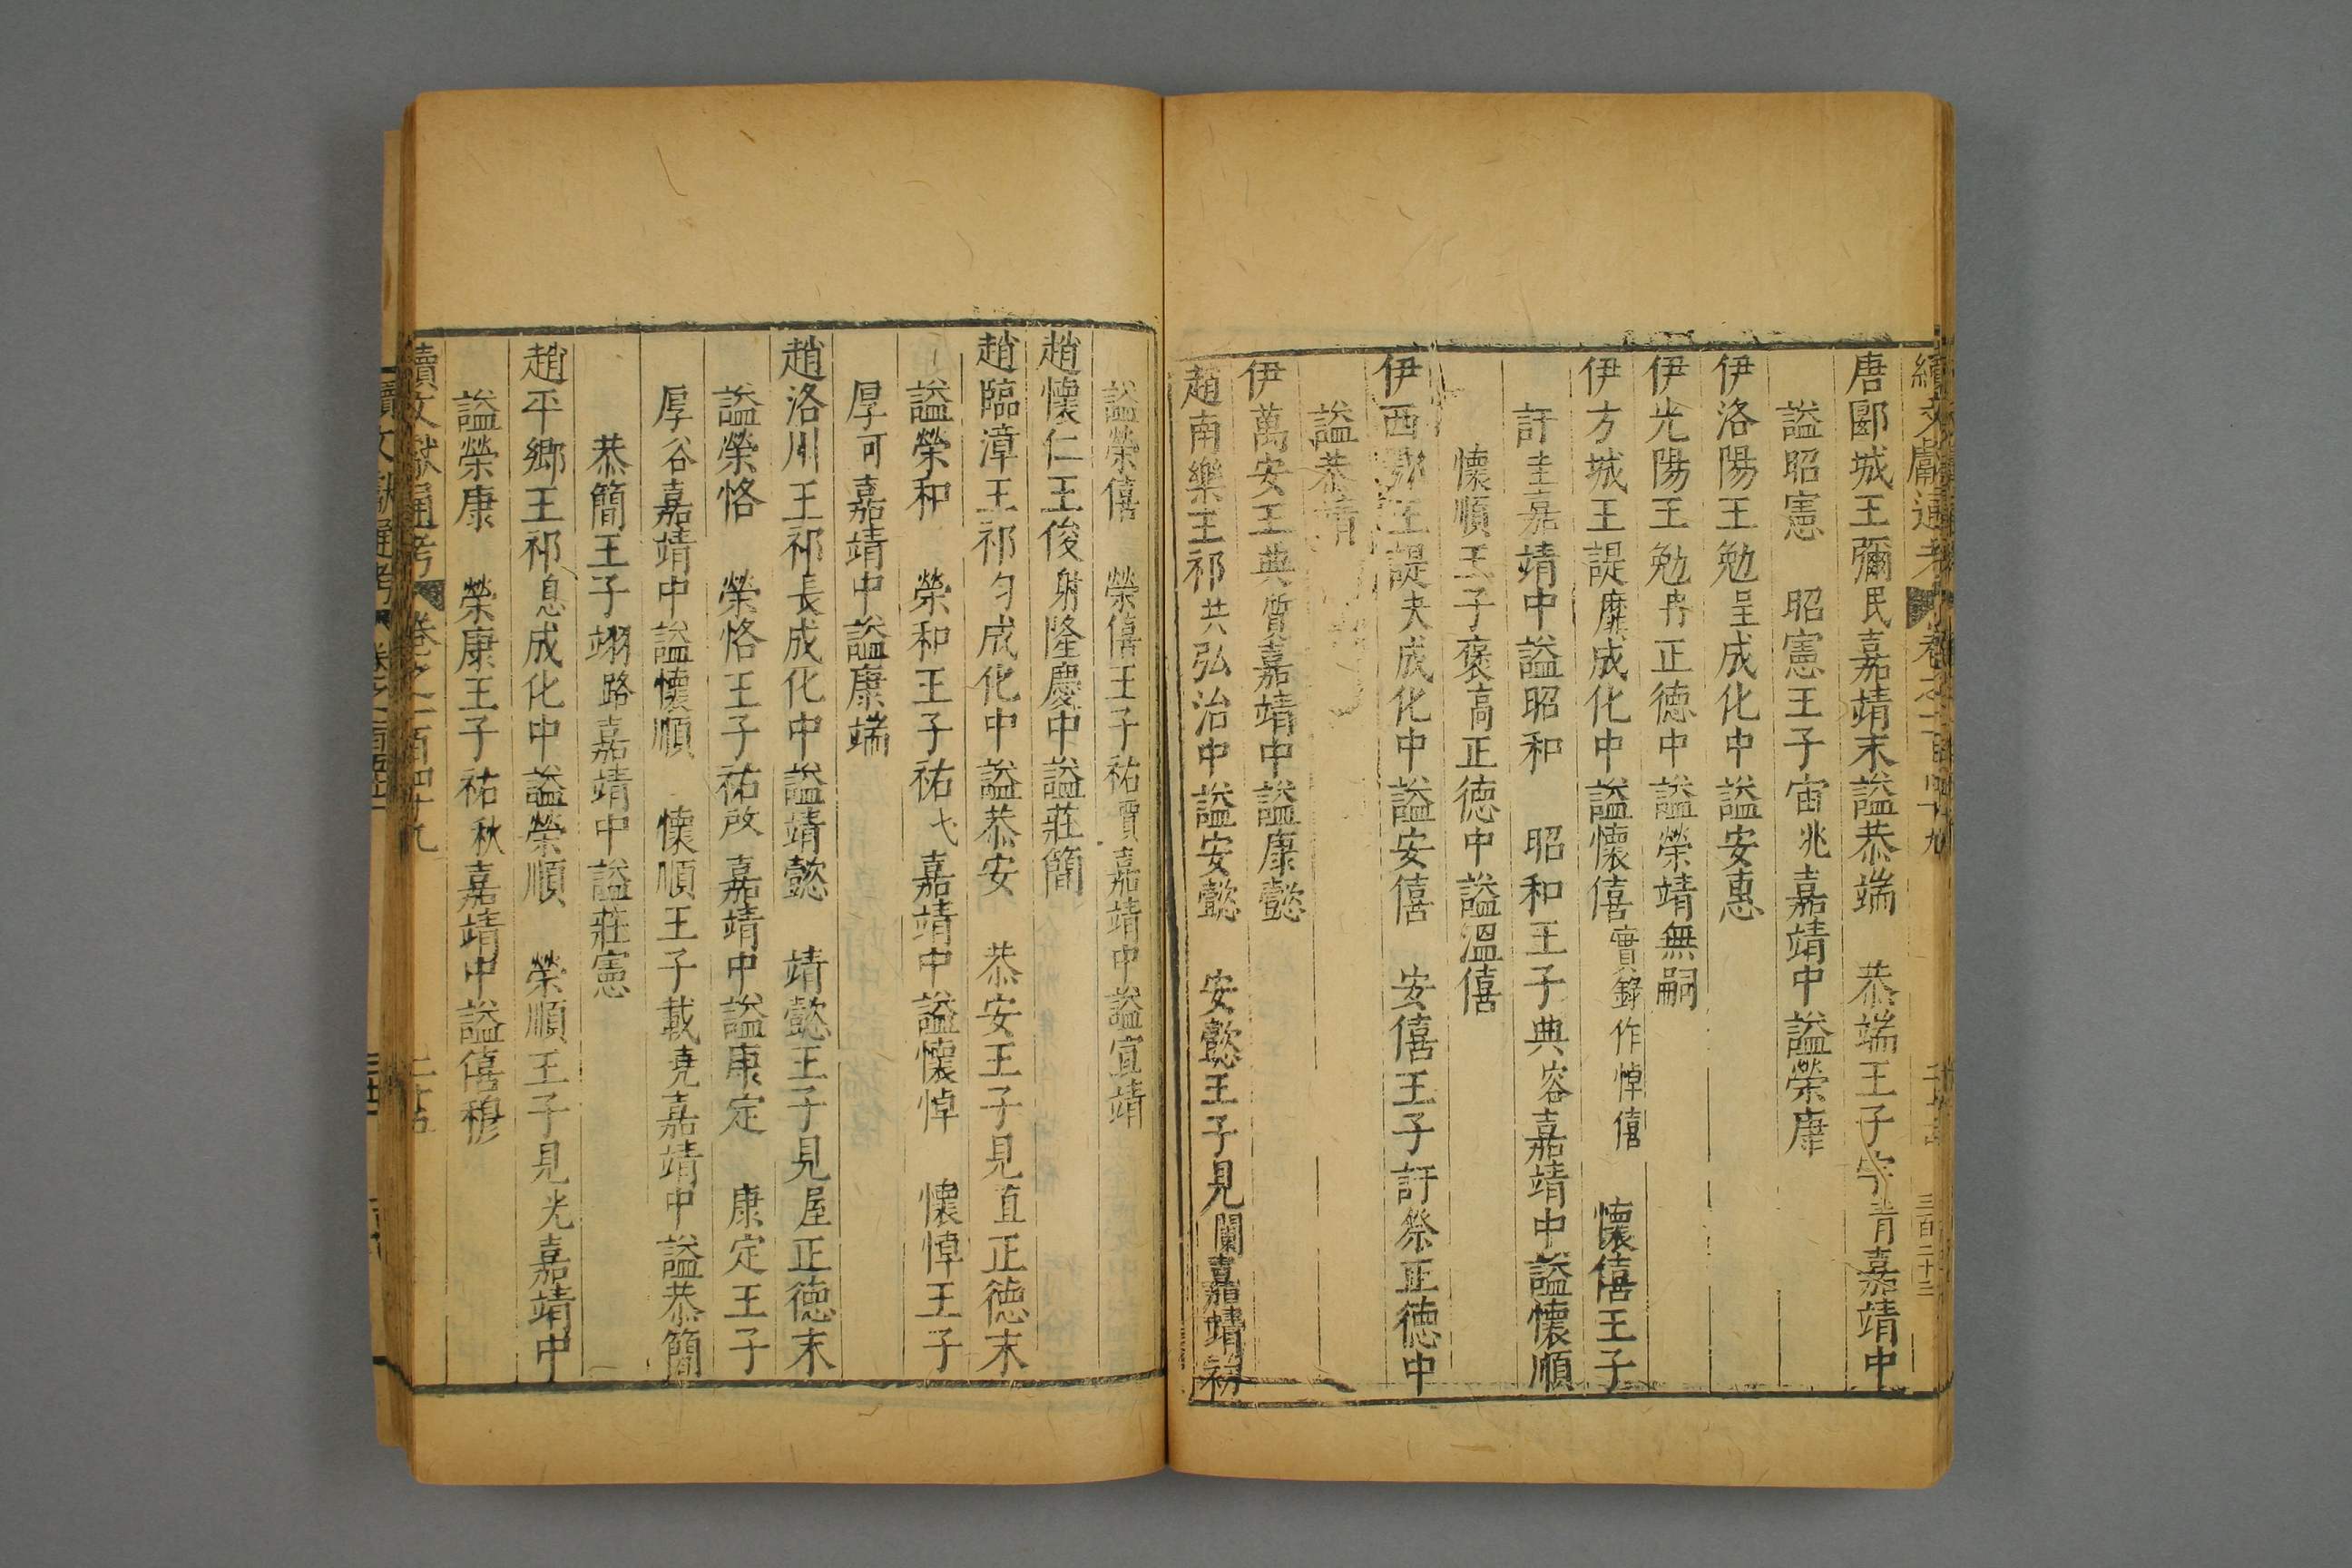 續文獻通考 卷之一百四十九
唐郾城王彌民嘉靖末謚恭端 恭端王子宇 嘉靖中
謚昭憲 昭憲王子宙兆嘉靖中謚榮康
伊洛陽王勉呈成化中謚安惠
伊光陽王勉冉正德中謚榮靖無嗣
伊方城王諟穈成化中謚懷僖實錄作悼僖 懷僖王子
訏圭嘉靖中謚昭和 昭和王子典容嘉靖中謚懷順
懷順王子褒高正德中謚溫僖
伊西鄂王諟夫成化中謚安僖 安僖王子訏祭正德中
謚恭靖
伊萬安王典質嘉靖中謚康懿
趙南樂王祁共弘治中謚安懿 安懿王子見闌嘉靖初
謚榮僖 榮僖王子祐賈嘉靖中謚宣靖
趙懷仁王俊射隆慶中謚莊簡
趙臨漳王祁勻成化中謚恭安 恭安王子見直正德末
謚榮和 榮和王子祐弋嘉靖中謚懷悼 懷悼王子
厚可嘉靖中謚康端
趙洛川王祁長成化中謚靖懿 靖懿王子見屋正德末
謚榮恪 榮恪王子祐啟嘉靖中謚康定 康定王子
厚谷嘉靖中謚懷順 懷順王子載堯嘉靖中謚恭簡
恭簡王子翊路嘉靖中謚莊憲
趙平鄉王祁息成化中謚榮順 榮順王子見光嘉靖中
謚榮康 榮康王子祐秋嘉靖中謚僖穆
續文獻通考 卷之一百四十九